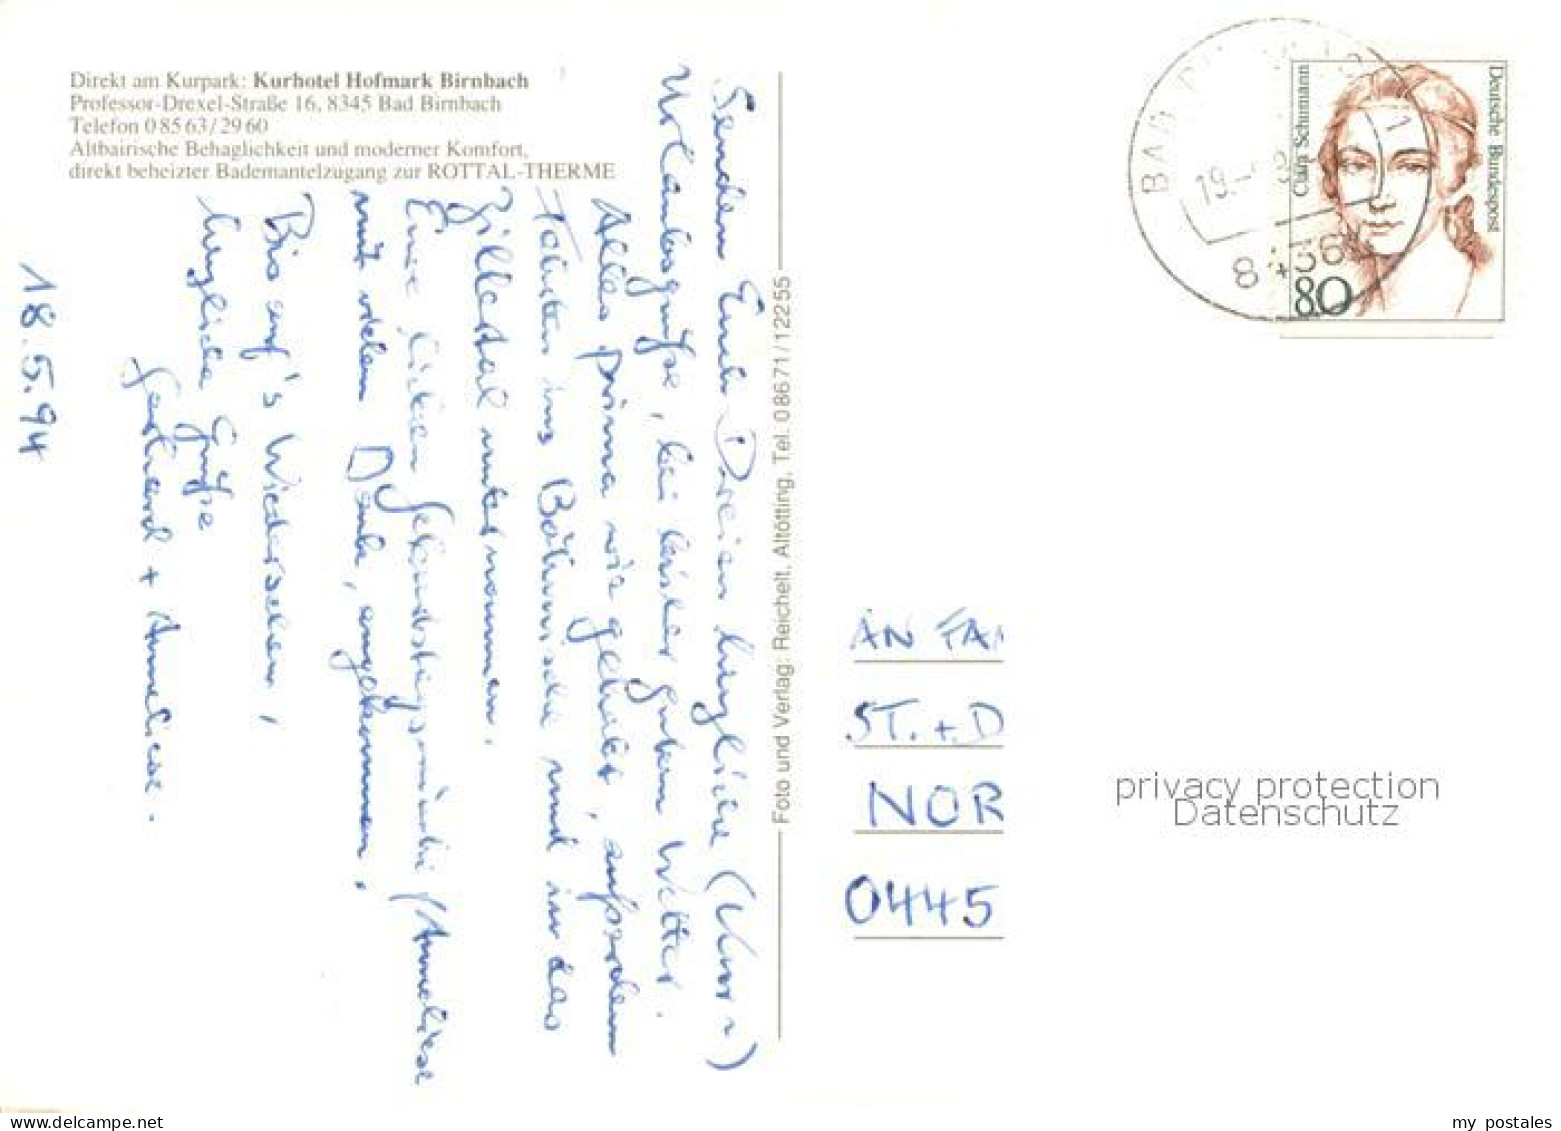 Direkt am Kurpark: Kurhotel Hofmark Birnbach
Professor-Drexel-Straße 16, 8345 Bad Birnbach
Telefon 0 85 63 / 29 60
Altbairische Behaglichkeit und moderner Komfort,
direkt beheizter Bademantelzugang zur ROTTAL-THERME
Senden Euch Dreien herzliche (Kur ~)
Urlaubsgrüße, bei bisher gutem Wetter.
Alles prima wie gehabt, außerdem
Fahrten ins Böhmische und in das
Zillertal unternommen.
Eure lieben Geburtstagswünsche (Anneliese
mit vielem Dank, angekommen.
Bis auf's Wiedersehen,
herzliche Grüße
Gerhard + Anneliese.
18.5.94
Foto und Verlag: Reichelt, Altötting, Tel. 08671/12255
BAD
19.-
1
8436
Clara Schumann
Deutsche Bundespost
80
AN FA
ST. + D
NOR
0445
privacy protection
Datenschutz
www.delcampe.net
my postales